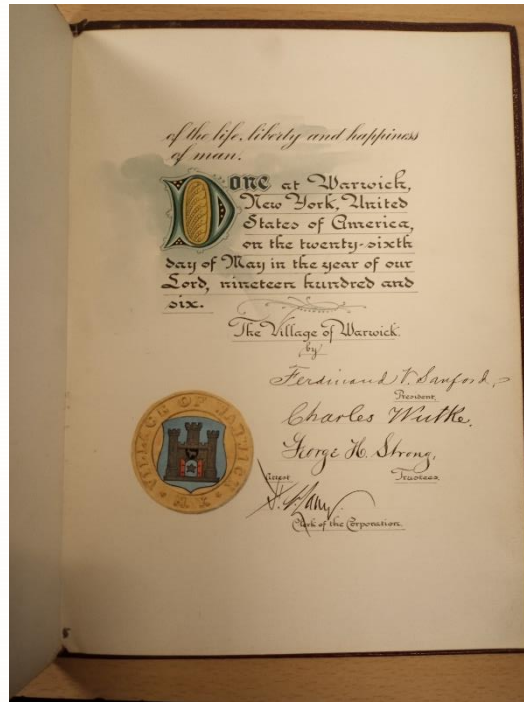 of the life, liberty and happiness
of man.
Done at Warwick,
New York, United
States of America,
on the twenty-sixth
day of May in the year of our
Lord, nineteen hundred and
six.
The Village of Warwick
by
Ferdinand V. Sanford,
President.
Charles Wutke,
George H. Strong,
Trustees
Attest
Clerk of the Corporation.
VILLAGE OF
N.Y.